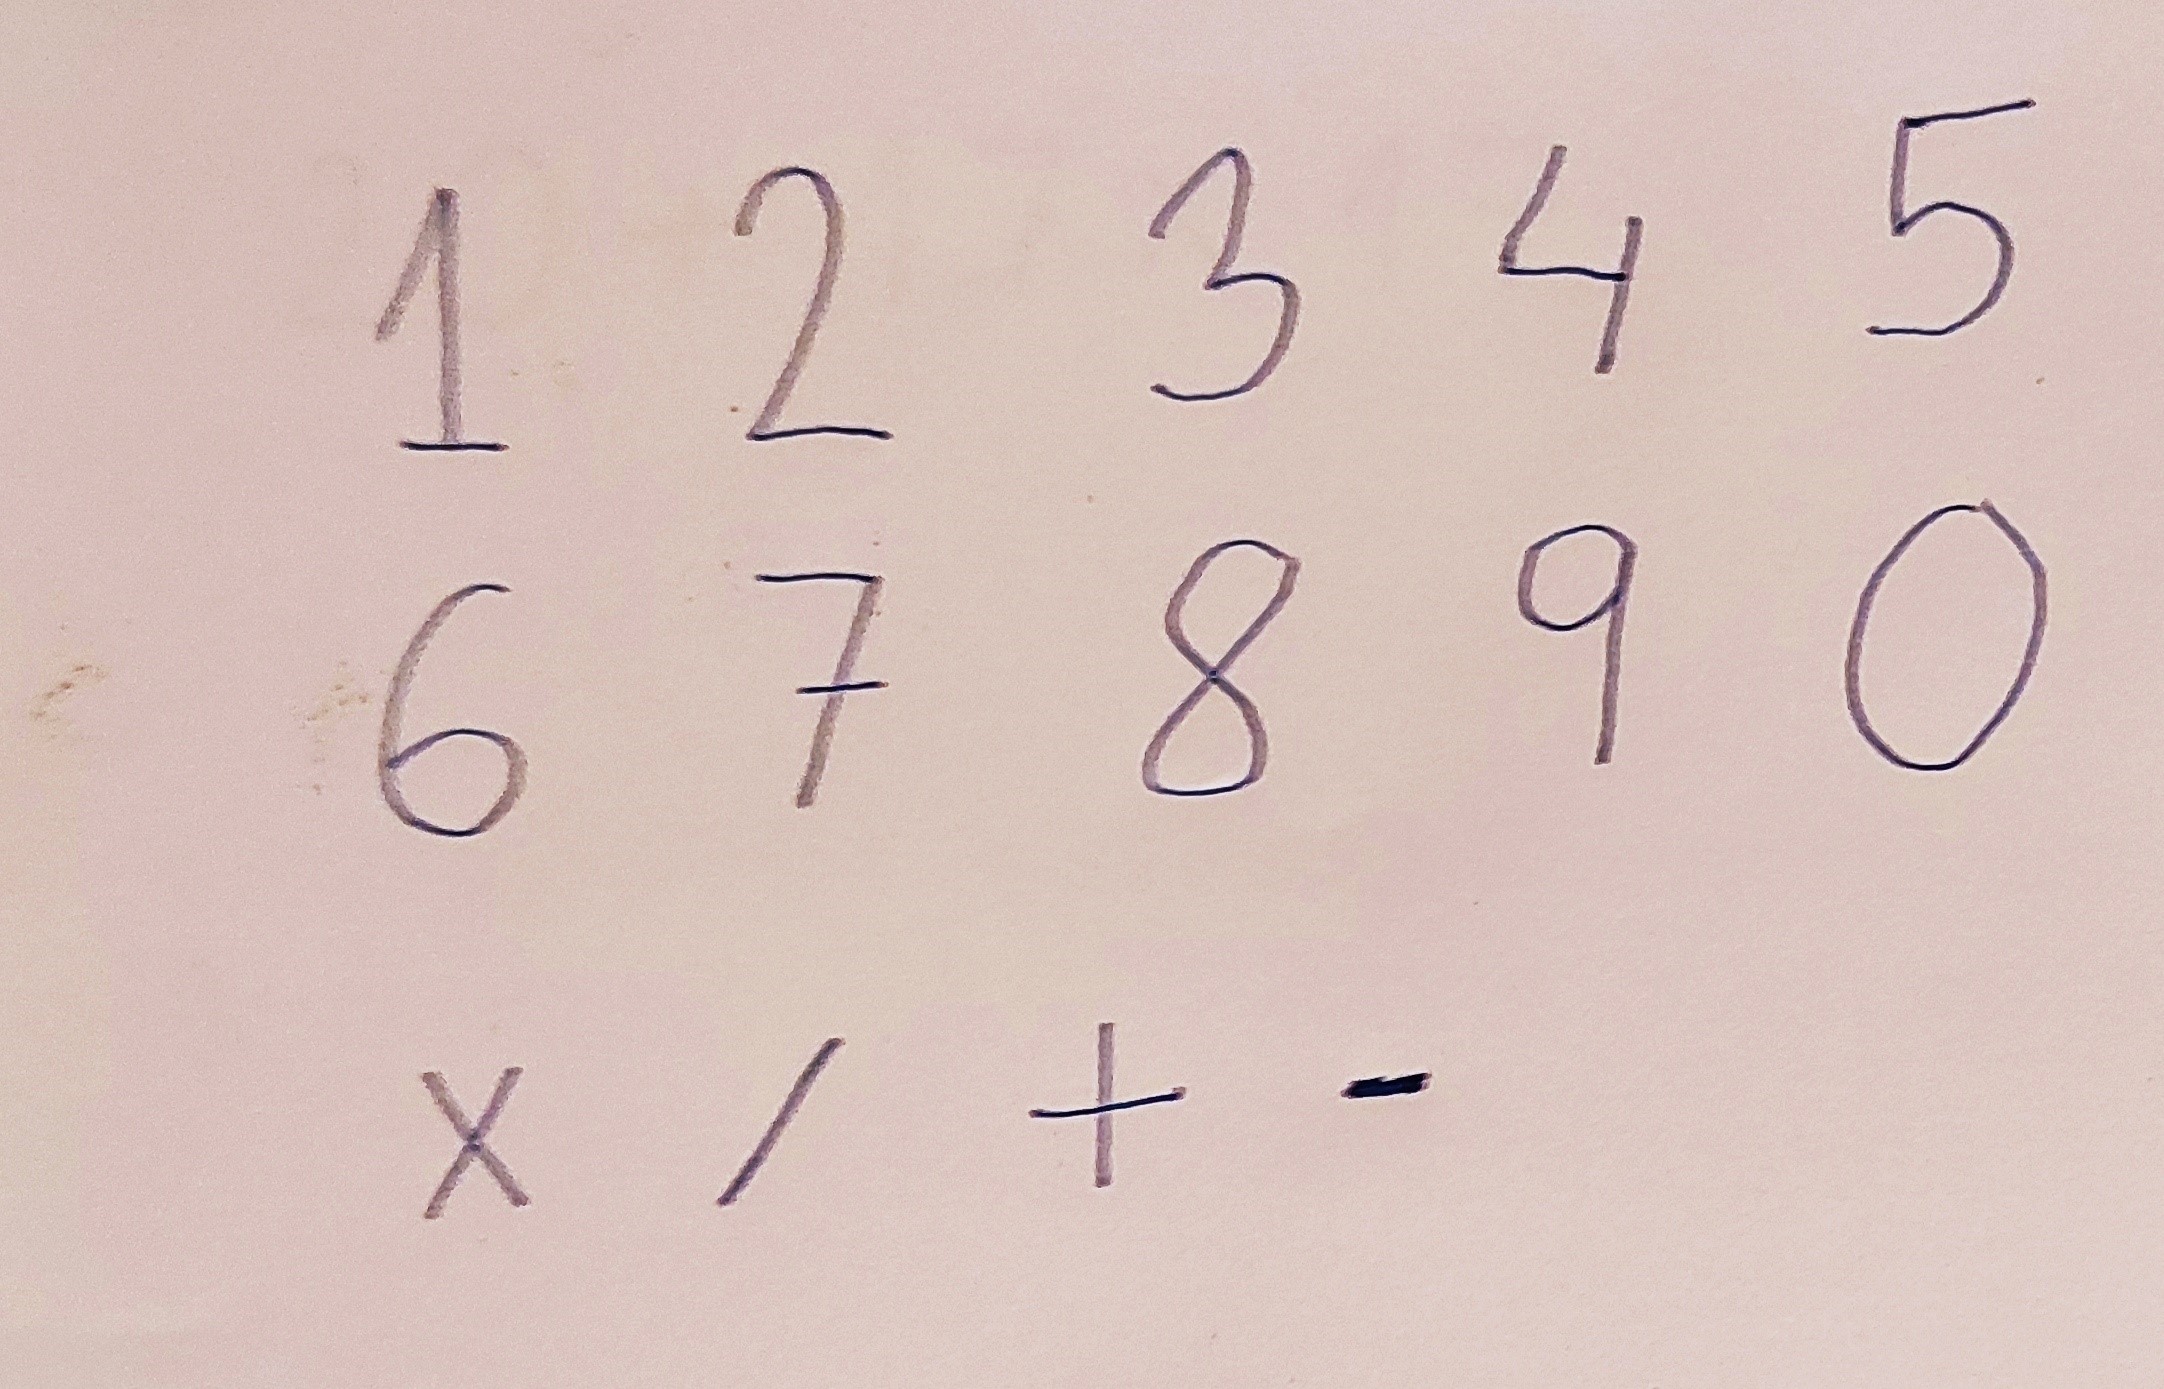 1 2 3 4 5
6 7 8 9 0
x / + -